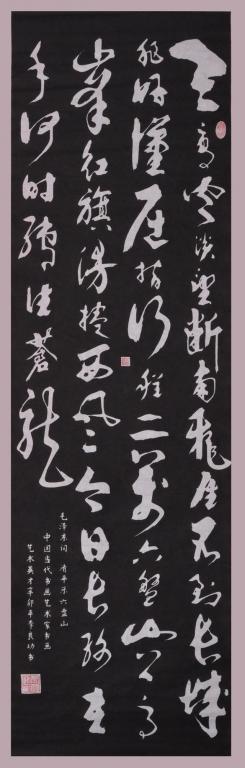 天高云淡望断南飞雁不到长城
非好汉屈指行程二万六盘山上高
峰红旗漫卷西风今日长缨在
手何时缚住苍龙
毛泽东词 清平乐六盘山
中国当代书画艺术家书画
艺术英才辛卯年李良功书